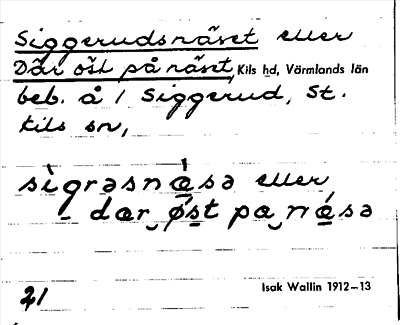 Siggerudsnäset eller
Där öst på näset, Kils hd, Värmlands län
beb. å 1 Siggerud, St.
Kils sn,
sìgrəsnä̀sə eller
dar øst pa näsə
21
Isak Wallin 1912–13